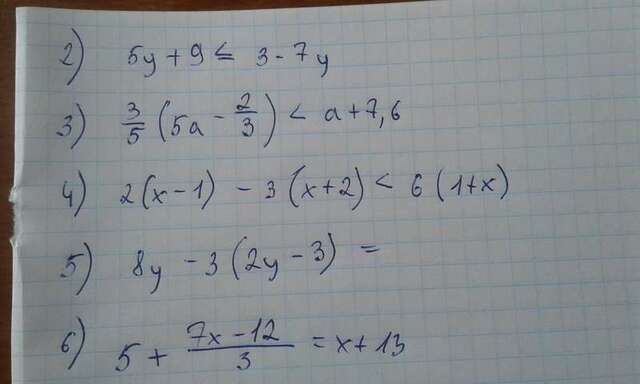 2) 5y + 9 ≤ 3 - 7y
3) 3/5 (5a - 2/3) < a + 7,6
4) 2(x-1) - 3(x+2) < 6(1+x)
5) 8y - 3(2y-3) =
6) 5 + (7x-12)/3 = x+13